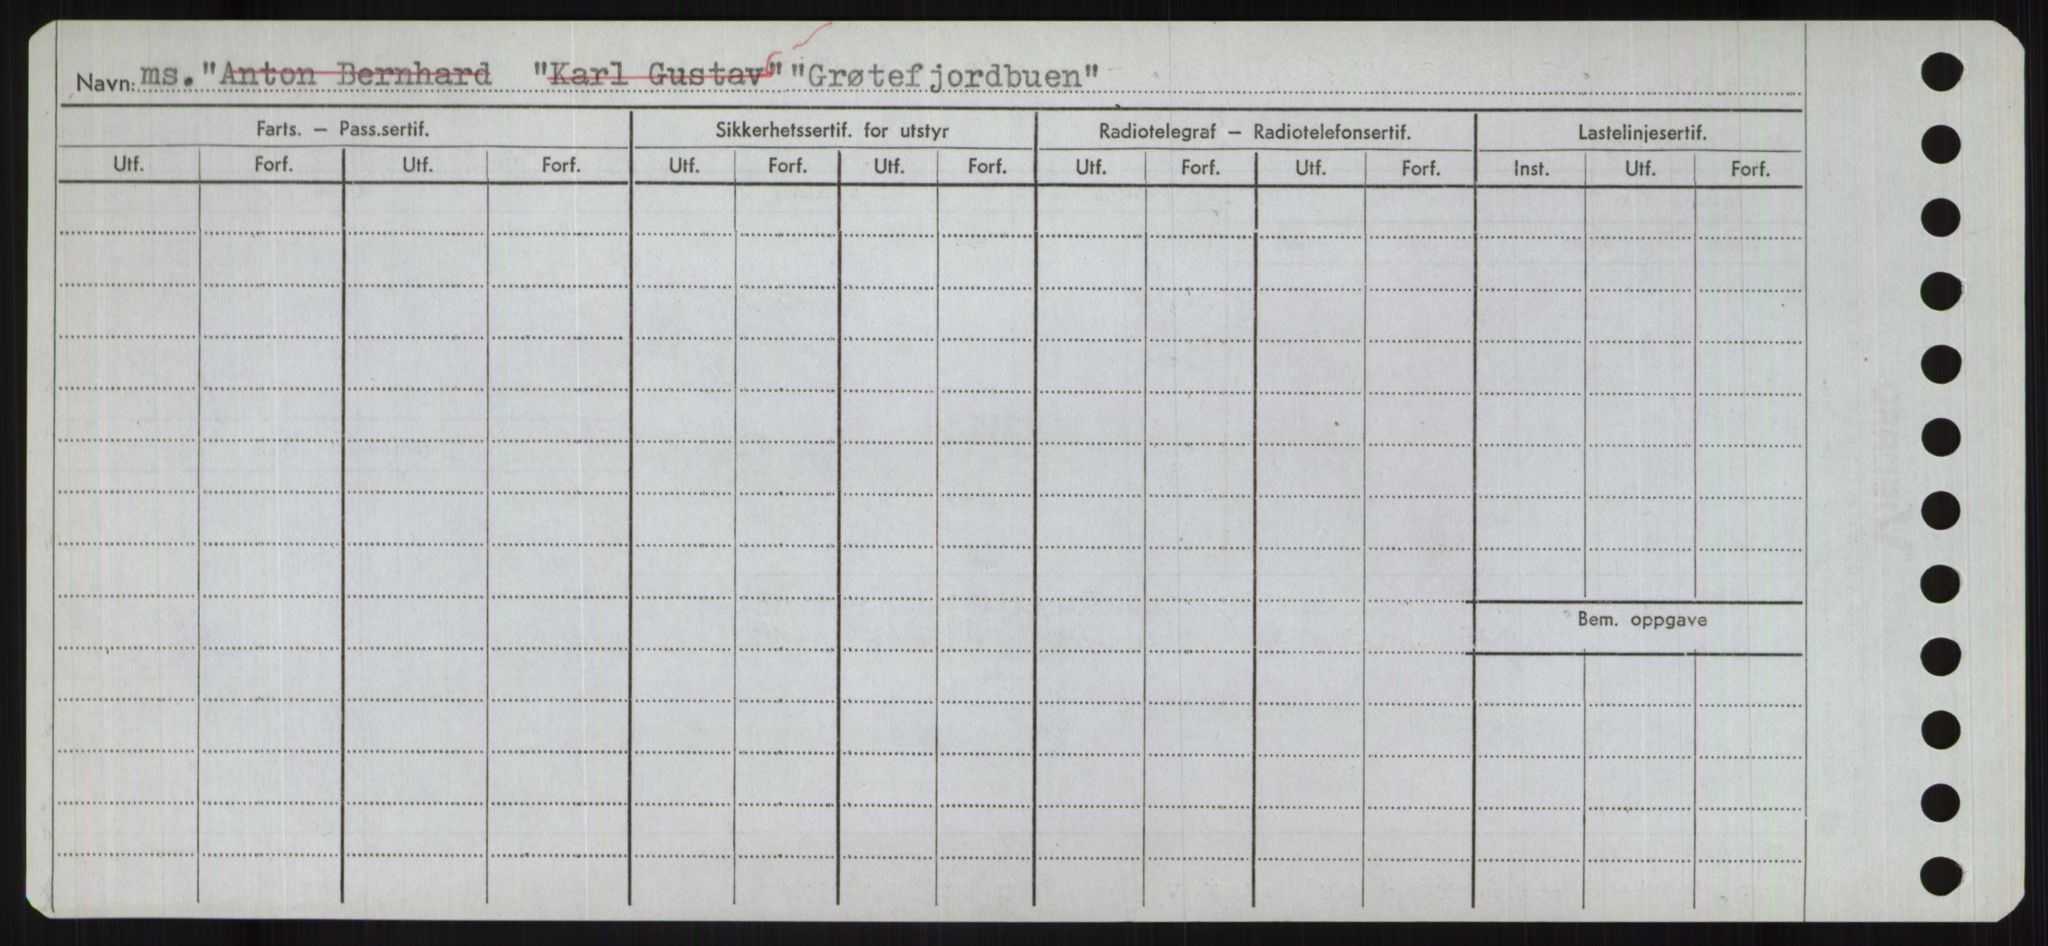 Navn: ms. "Anton Bernhard "Karl Gustav" "Grøtefjordbuen"
Farts. – Pass.sertif. Sikkerhetssertif. for utstyr Radiotelegraf – Radiotelefonsertif. Lastelinjesertif.
Utf. Forf. Utf. Forf. Utf. Forf. Utf. Forf. Utf. Forf. Utf. Forf. Inst. Utf. Forf.
Bem. oppgave